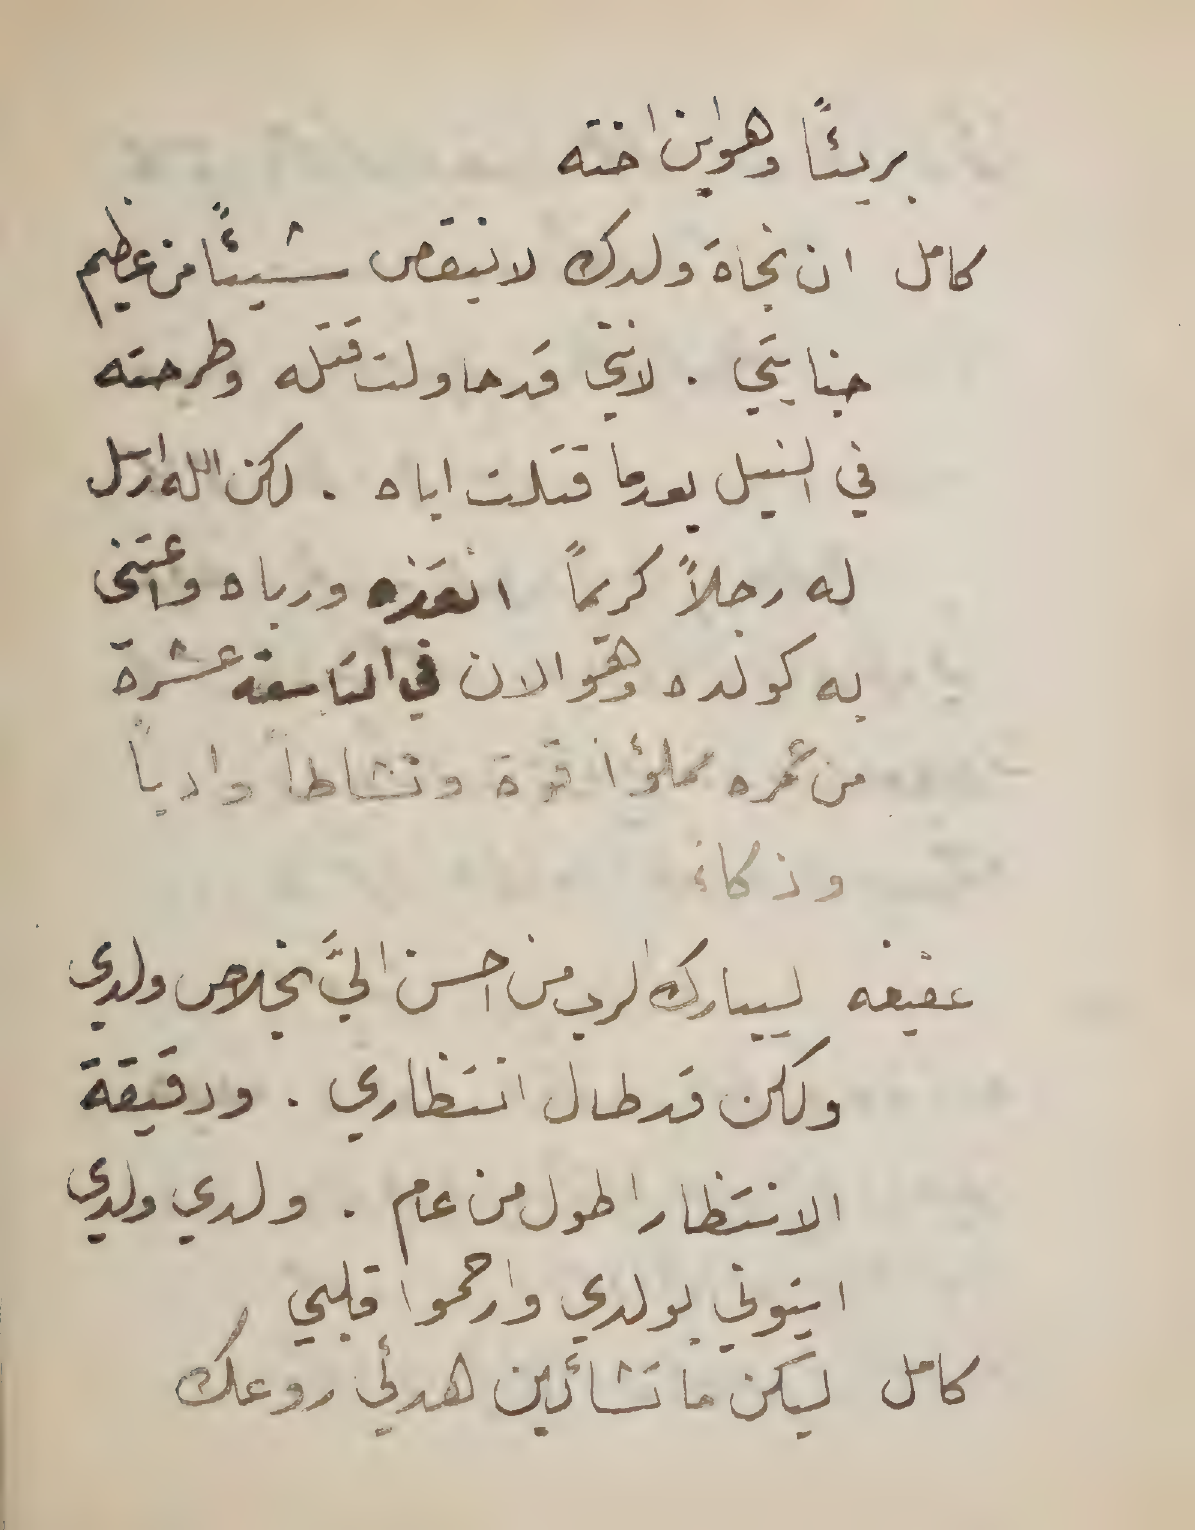 بريئاً وهو ابن اخته
كامل ان نجاة ولدك لا ينقص شيئاً من عظيم
جنايتي . لانني قد حاولت قتله وطرحته
في النيل بعدما قتلت اباه . لكن الله ارسل
له رجلاً كريماً انقذه ورباه واعتنى
به كولده وهو الان في التاسعة عشرة
من عمره مملؤاً قوة ونشاطاً وادباً
وذكاءً
عفيفه ليبارك الرب من احسن اليَّ بخلاص ولدي
ولكن قد طال انتظاري . ودقيقة
الانتظار اطول من عام . ولدي ولدي
ايتوني بولدي وارحموا قلبي
كامل ليكن ما تشائين هدئي روعك